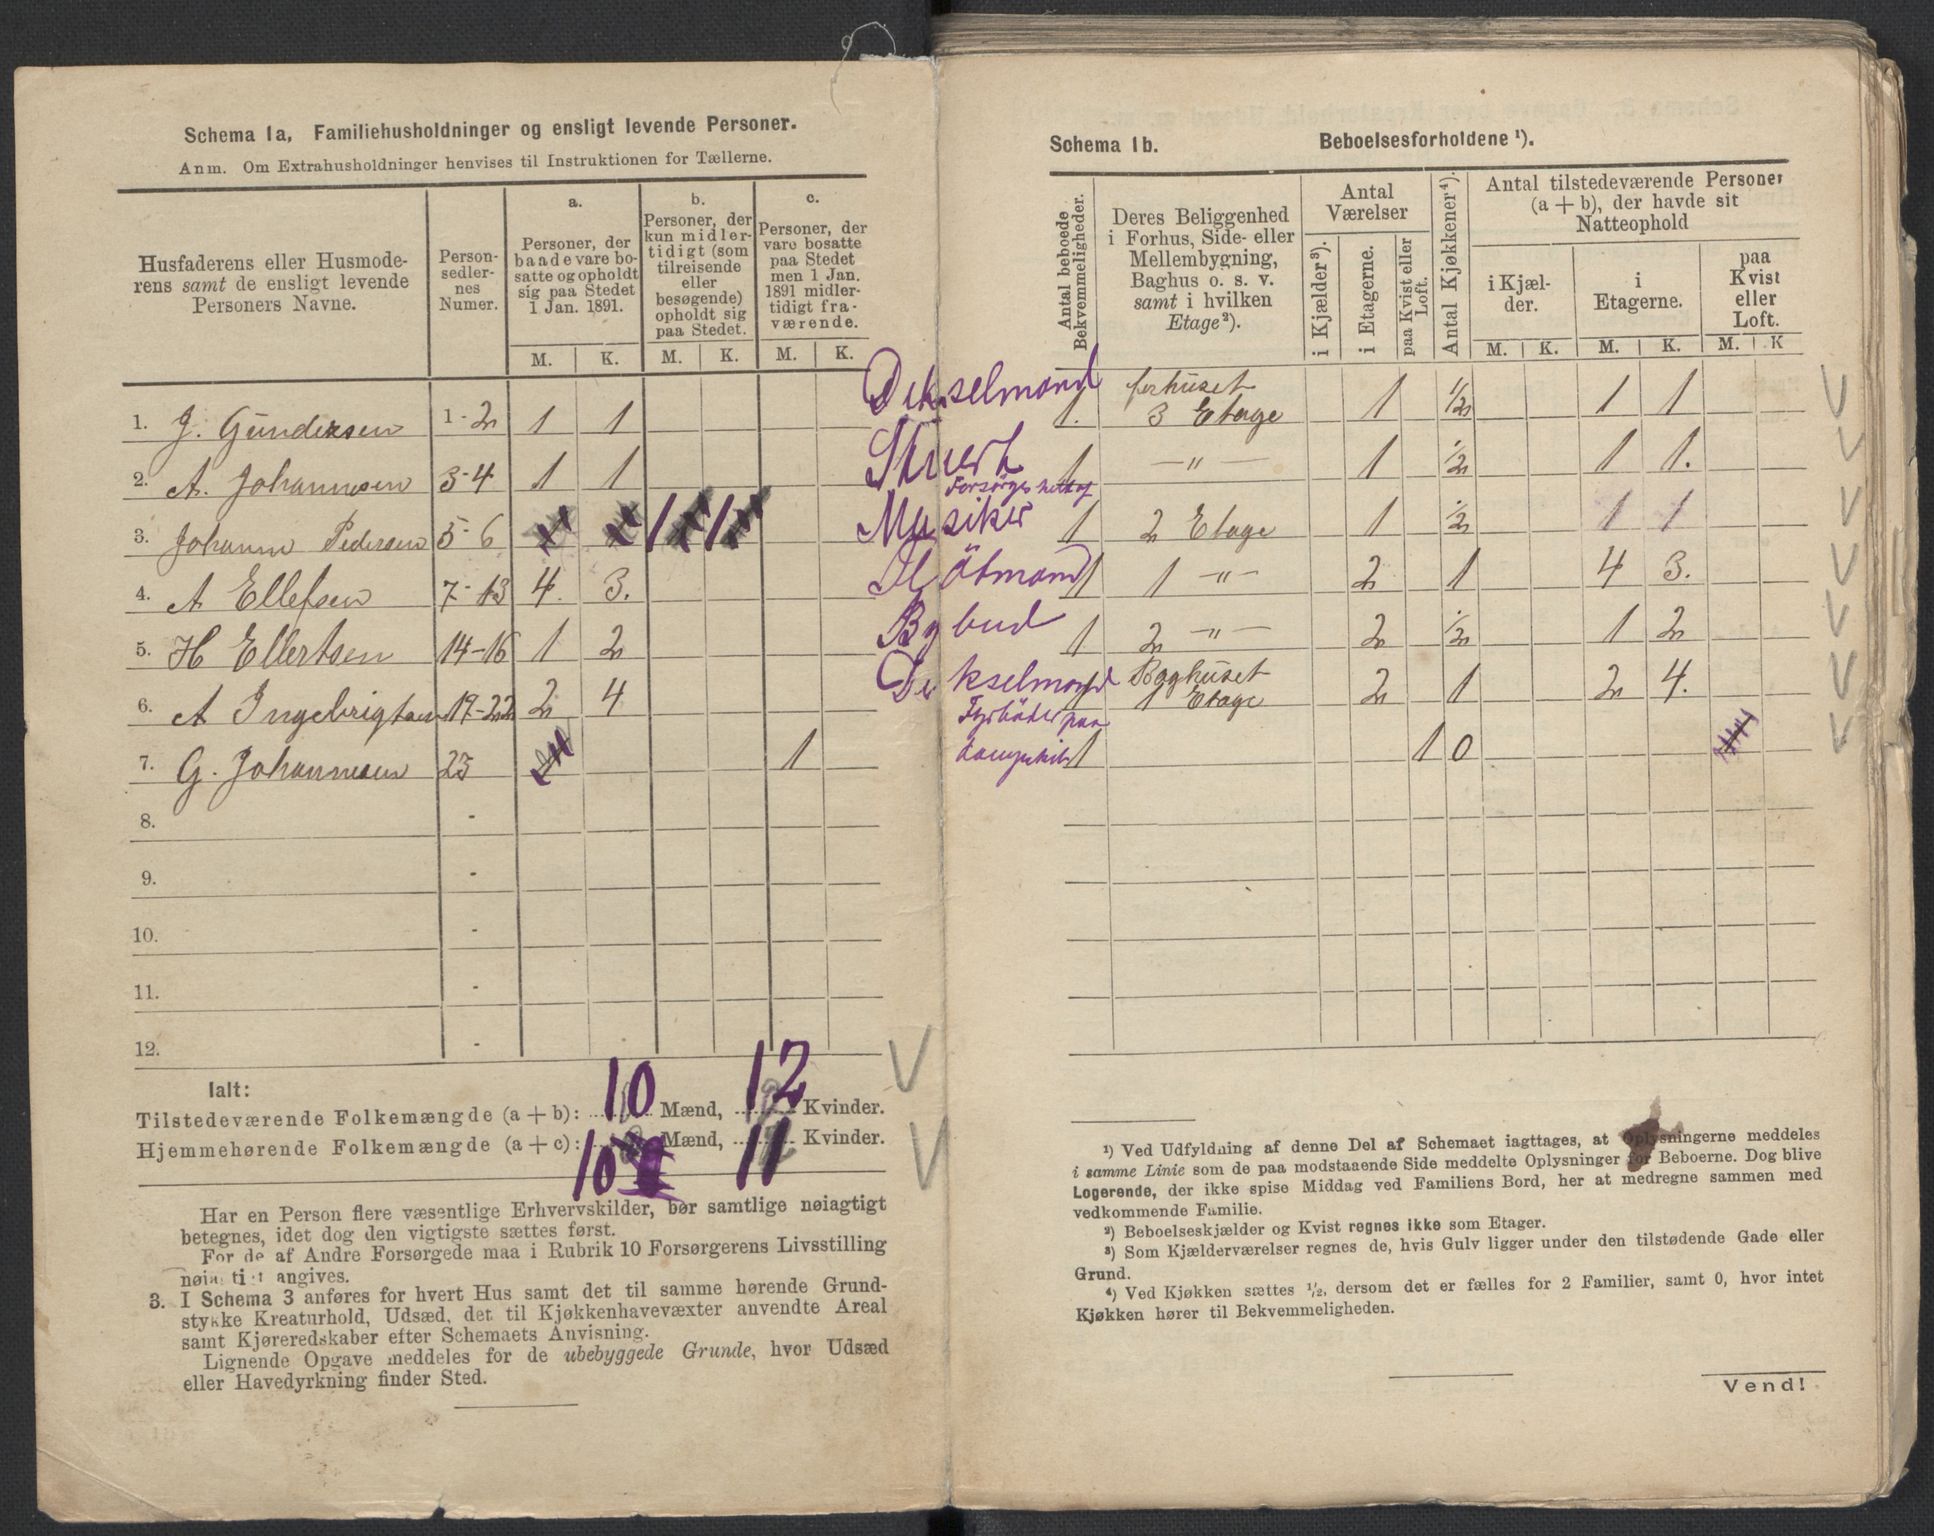 Schema 1a, Familiehusholdninger og ensligt levende Personer.
Anm. Om Extrahusholdninger henvises til Instruktionen for Tællerne.
Husfaderens eller Husmoderens samt de ensligt levende Personers Navne.
Personsedlernes Numer.
a. Personer, der baade vare bosatte og opholdt sig paa Stedet 1 Jan. 1891.
b. Personer, der kun midlertidigt (som tilreisende eller besøgende) opholdt sig paa Stedet.
c. Personer, der vare bosatte paa Stedet men 1 Jan. 1891 midlertidigt fraværende.
M. K. M. K. M. K.
1. J. Gundersen 1-2 1 1
2. A. Johannesen 3-4 1 1
3. Johann Pedersen 5-6 1 1
4. A Ellefsen 7-13 4. 3.
5. H Ellertsen 14-16 1 2
6. A Ingebrigtsen 17-22 2 4
7. G. Johannesen 23 1
8. -
9. -
10. -
11. -
12. -
Ialt:
Tilstedeværende Folkemængde (a + b): 10 Mænd, 12 Kvinder.
Hjemmehørende Folkemængde (a + c): 10 Mænd, 11 Kvinder.
Har en Person flere væsentlige Erhvervskilder, bør samtlige nøiagtigt
betegnes, idet dog den vigtigste sættes først.
For de af Andre Forsørgede maa i Rubrik 10 Forsørgerens Livsstilling
nøiagtigt angives.
3. I Schema 3 anføres for hvert Hus samt det til samme hørende Grund-
stykke Kreaturhold, Udsæd, det til Kjøkkenhavevæxter anvendte Areal
samt Kjøreredskaber efter Schemaets Anvisning.
Lignende Opgave meddeles for de ubebyggede Grunde, hvor Udsæd
eller Havedyrkning finder Sted.
Schema 1b. Beboelsesforholdene ¹).
Antal beboede Bekvemmeligheder.
Deres Beliggenhed i Forhus, Side- eller Mellembygning, Baghus o. s. v. samt i hvilken Etage²).
Antal Værelser
i Kjælder³).
i Etagerne.
paa Kvist eller Loft.
Antal Kjøkkener⁴).
Antal tilstedeværende Personer (a + b), der havde sit Natteophold
i Kjælder.
i Etagerne.
paa Kvist eller Loft.
M. K. M. K. M. K
Dekselmand 1. forhuset 3 Etage 1 1/2 1 1
Stuert 1 —"— 1 1/2 1 1.
Musiker 1 2 Etage 1 1/2 1 1
1 1 —"— 2 1 4 3.
Bybud 1 2 —"— 2 1/2 1 2
Dekselmand 1 Baghuset 1 Etage 2 1 2 4.
Fyrbøder paa
dampskib 1 1 0
¹) Ved Udfyldning af denne Del af Schemaet iagttages, at Oplysningerne meddeles
i samme Linie som de paa modstaaende Side meddelte Oplysninger for Beboerne. Dog blive
Logerende, der ikke spise Middag ved Familiens Bord, her at medregne sammen med
vedkommende Familie.
²) Beboelseskjælder og Kvist regnes ikke som Etager.
³) Som Kjælderværelser regnes de, hvis Gulv ligger under den tilstødende Gade eller
Grund.
⁴) Ved Kjøkken sættes ½, dersom det er fælles for 2 Familier, samt 0, hvor intet
Kjøkken hører til Bekvemmeligheden.
Vend!